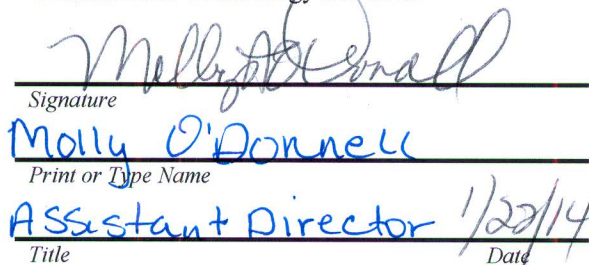 Molly O'Donnell
Signature
Molly O'Donnell
Print or Type Name
Assistant Director 1/22/14
Title Date